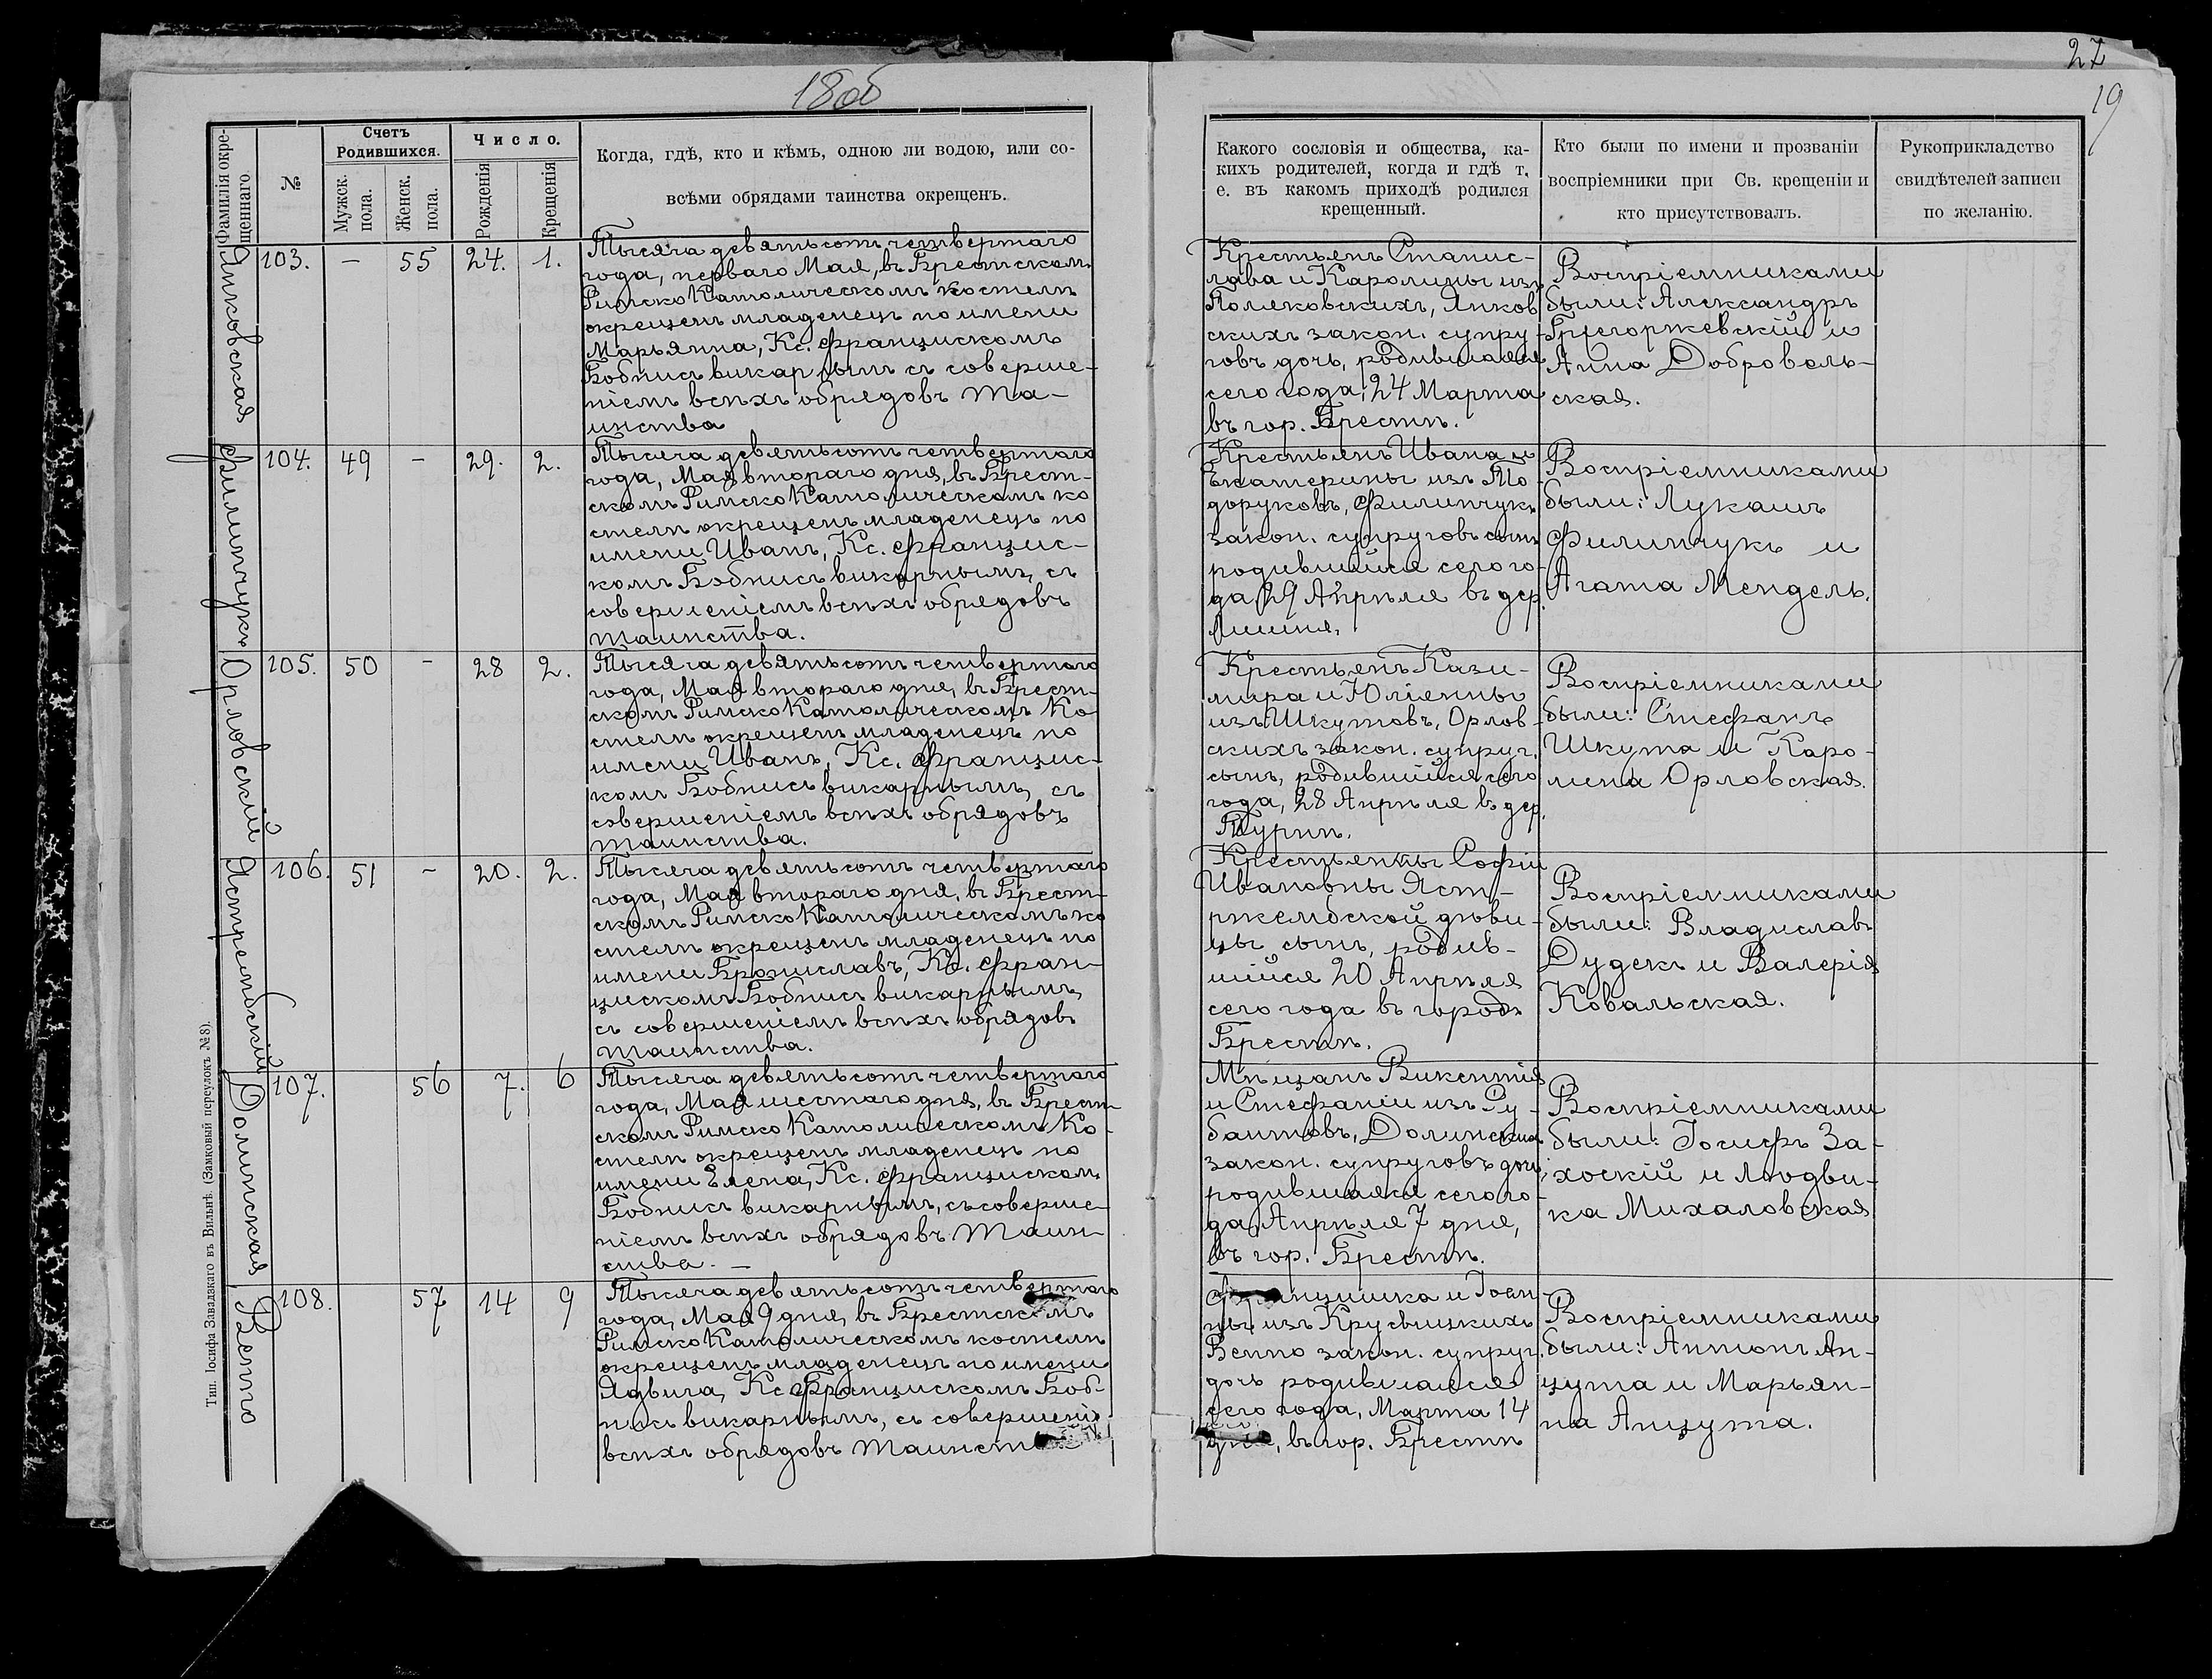 18об
27
19
Фамилія окре-
щеннаго.
№
Счетъ
Родившихся.
Мужск.
пола.
Женск.
пола.
Число.
Рожденія
Крещенія
Когда, гдѣ, кто и кѣмъ, одною ли водою, или со-
всѣми обрядами таинства окрещенъ.
Какого сословія и общества, ка-
кихъ родителей, когда и гдѣ т.
е. въ какомъ приходѣ родился
крещенный.
Кто были по имени и прозваніи
воспріемники при Св. крещеніи и
кто присутствовалъ.
Рукоприкладство
свидѣтелей записи
по желанію.
Янковская
103. – 55 24. 1.
Тысяча девятьсотъ четвертаго
года, перваго Мая, въ Брестском
Римско Католическомъ костелѣ
окрещенъ младенецъ по имени
Марьянна, Кс. Францискомъ
Бобнисъ викарнымъ съ соверше-
ніемъ всѣхъ обрядовъ Та-
инства
Крестьянъ Станис-
лава и Каролины изъ
Поляковскихъ, Янков
скихъ закон. супру-
говъ дочь, родившаяся
сего года, 24 Марта
въ гор. Брестѣ.
Воспріемниками
были: Александръ
Григоржевскій и
Анна Доброволь-
ская.
Филипчукъ
104. 49 – 29. 2.
Тысяча девятьсотъ четвертаго
года, Мая втораго дня, въ Брест-
скомъ Римско Католическомъ ко
стелѣ окрещенъ младенецъ по
имени Иванъ, Кс. Францис-
комъ Бобнисъ викарнымъ, съ
совершеніемъ всѣхъ обрядовъ
таинства.
Крестьянъ Ивана и
Екатерины изъ То-
доруковъ, Филипчукъ
закон. супруговъ сынъ
родившійся сего го-
да, 29 Апрѣля въ дер.
Воспріемниками
были: Лукашъ
Филипчукъ и
Агата Мендель.
Орловскій
105. 50 – 28 2.
Тысяча девятьсотъ четвертаго
года, Мая втораго дня, въ Брест-
скомъ Римско Католическомъ Ко
стелѣ окрещенъ младенецъ по
имени Иванъ, Кс. Францис-
комъ Бобнисъ викарнымъ, съ
совершеніемъ всѣхъ обрядовъ
таинства.
Крестьянъ Кази-
мира и Юліянны
изъ Шкутовъ, Орлов-
скихъ закон. супруг.
сынъ, родившійся сего
года, 28 Апрѣля въ дер.
Воспріемниками
были: Стефанъ
Шкута и Каро-
лина Орловская.
Ястрембскій
106. 51 – 20. 2.
Тысяча девятьсотъ четвертаго
года, Мая втораго дня, въ Брест-
скомъ Римско Католическомъ ко
стелѣ окрещенъ младенецъ по
имени Брониславъ, Кс. Фран-
цискомъ Бобнисъ викарнымъ,
съ совершеніемъ всѣхъ обрядовъ
таинства.
Крестьянки Софіи
Ивановны Яст-
ржембской дѣви-
цы сынъ, родив-
шійся 20 Апрѣля
сего года въ городѣ
Брестѣ.
Воспріемниками
были: Владиславъ
Дудекъ и Валерія
Ковальская.
Долинская
107. 56 7. 6
Тысяча девятьсотъ четвертаго
года, Мая шестаго дня, въ Брест-
скомъ Римско Католическомъ Ко-
стелѣ окрещенъ младенецъ по
имени Елена, Кс. Францискомъ
Бобнисъ викарнымъ, съ соверше-
ніемъ всѣхъ обрядовъ Таин-
ства. –
Мѣщанъ Викентія
и Стефаніи изъ Ру-
баштовъ, Долинскихъ
закон. супруговъ дочь,
родившаяся сего го-
да, Апрѣля 7 дня,
въ гор. Брестѣ.
Воспріемниками
были: Іосифъ За-
хоскій и Людви-
ка Михаловская
Венто
108. 57 14 9
Тысяча девятьсотъ четвертаго
года, Мая 9 дня, въ Брестскомъ
Римско Католическомъ костелѣ
окрещенъ младенецъ по имени
Ядвига, Кс. Францискомъ Боб-
нисъ викарнымъ, съ совершеніе
всѣхъ обрядовъ Таинст
и Іоан-
ны изъ
Венто закон. супруг.
дочь родившаяся
сего года, Марта 14
дня, въ гор. Брестѣ
Воспріемниками
были: Антонъ Ан-
цута и Марьян-
на Анцута.
Тип. Іосифа Завадзкаго въ Вильнѣ. (Замковый переулокъ № 8).